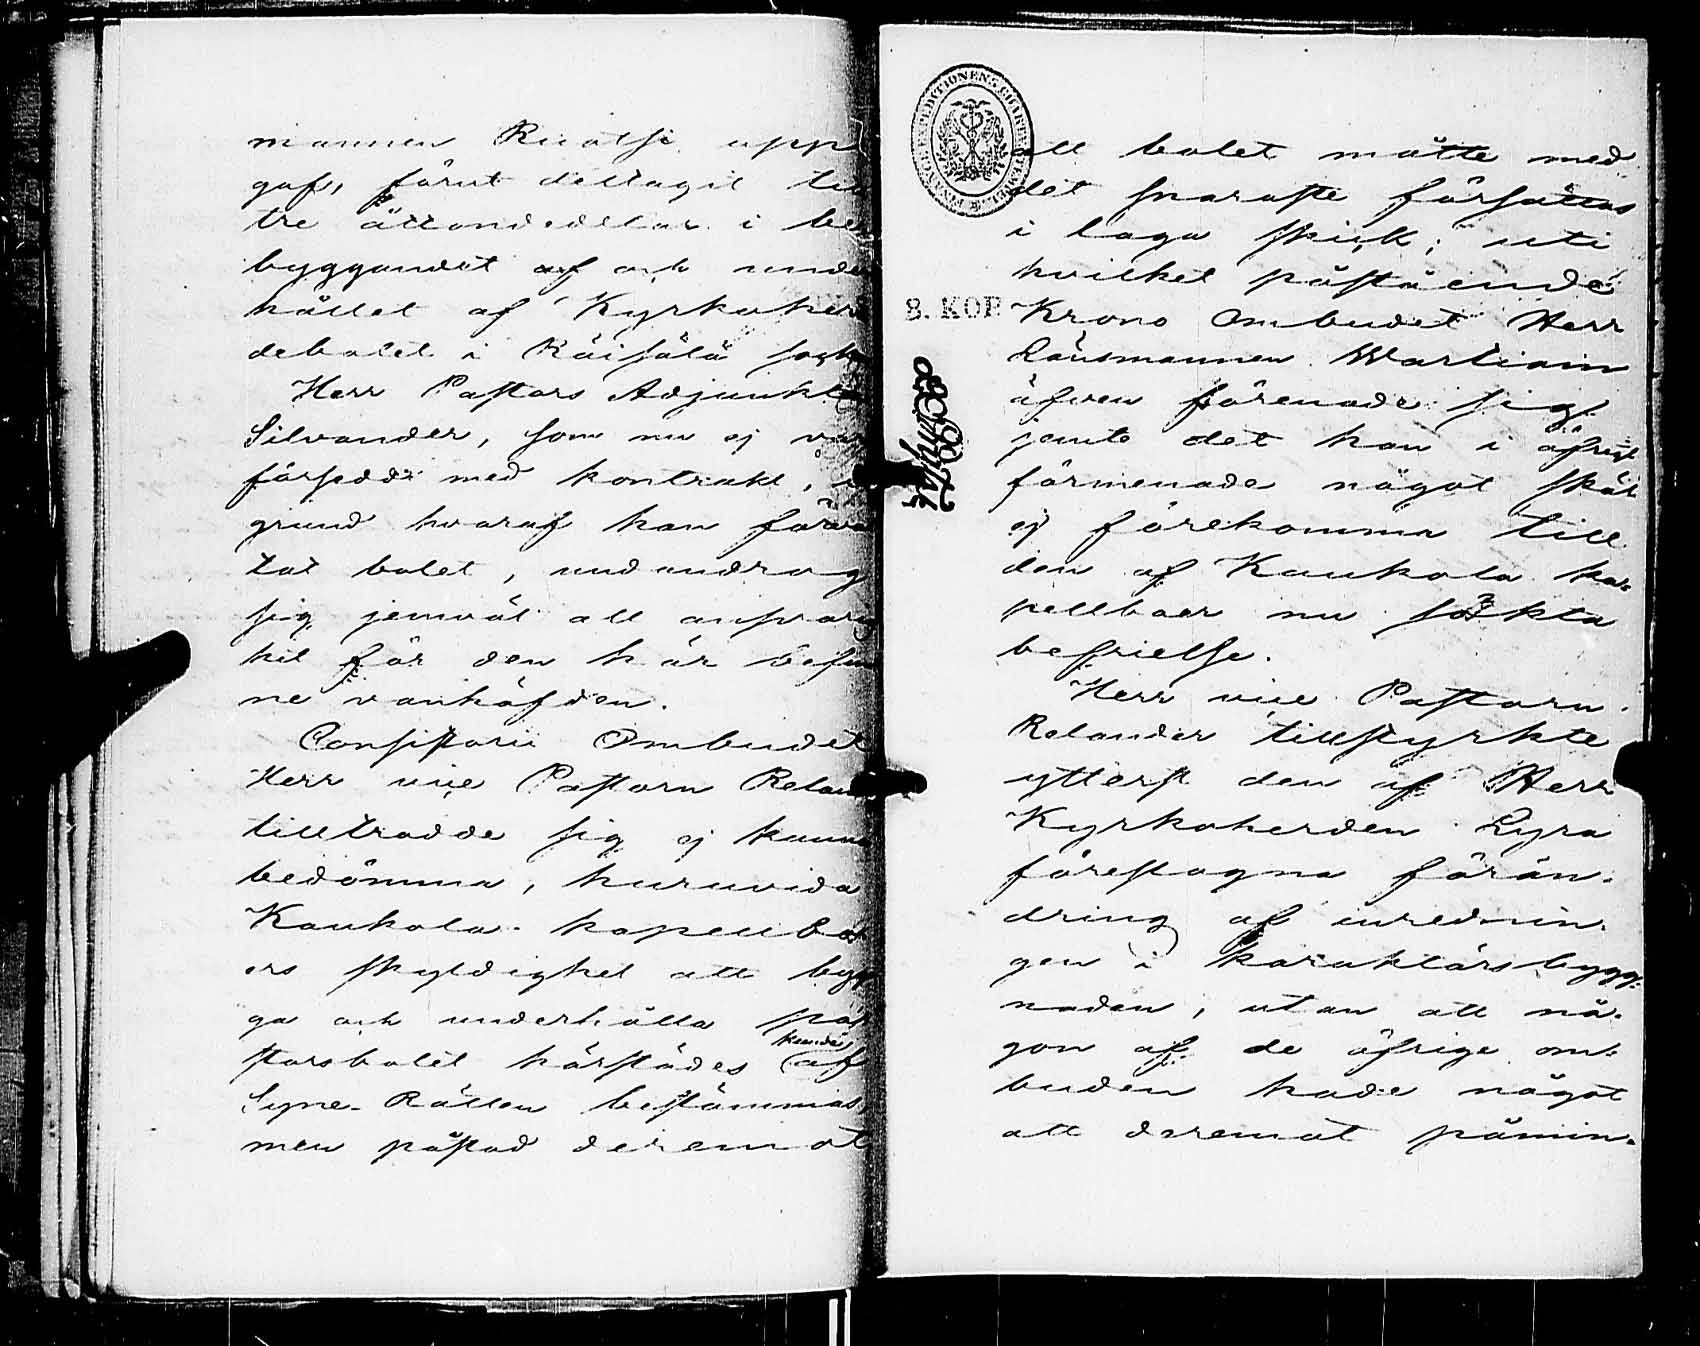 mannen Ruotsi upp
gaf, förut deltagit ti
tre åttondedelar i be
byggandet af och unde
hållet af Kyrkoher
debolet i Räisälä sock
Herr Pastors Adjunkte
Silvander, som nu ej va
försedd med kontrakt, å
grund hvaraf han förva
tat bolet, undandrog
sig jemväl all ansvarig
het för den här befun
ne vanhäfden.
Consistorii Ombudet
Herr vice Pastorn Relan
tilltrodde sig ej kunna
bedömma, huruvida
Kaukola kapellbo
ers skyldighet att byg
ga och underhålla pa
storsbolet härstädes kunde af
Syne-Rätten bestämmas,
men påstod deremot
att bolet måtte med
det snaraste försättas
i laga skick; uti
hvilket påstående
8. KOP.
Krono Ombudet Herr
Länsmannen Wartiain
äfven förenade sig
jemte det han i öfrigt
förmenade något skäl
ej förekomma till
den af Kaukola ka-
pellboer nu sökta
befrielse.
Herr vice Pastorn
Relander tillstyrkte
ytterst den af Herr
Kyrkoherden Lyra
föreslagna förän-
dring af inrednin-
gen i karaktärsbygg-
naden, utan att nå-
gon af de öfrige om-
buden hade något
att deremot påmin-